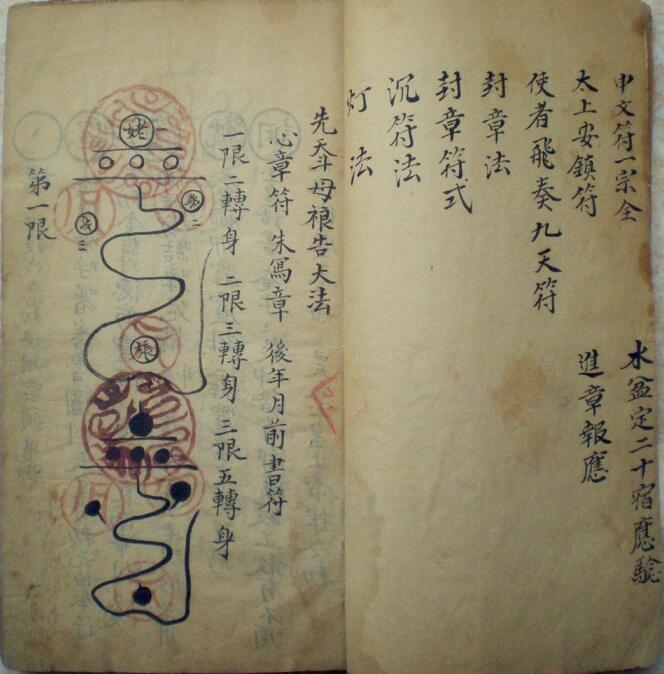 申文符一宗全
水盆定二十宿應驗
太上安鎮符
進章報應
使者飛奏九天符
封章法
封章符式
沉符法
灯法
先天斗母告大法
心章符 朱寫章後年月前書符
一限二轉身 二限三轉身 三限五轉身
姥一
二
三
第一限